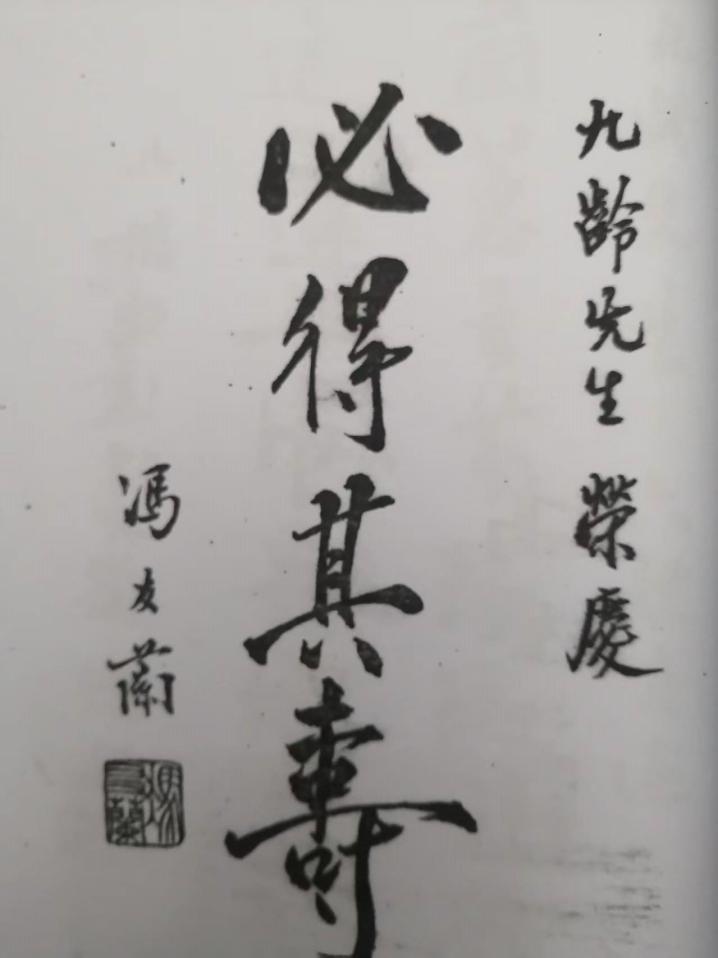 九齡先生 榮慶
必得其壽
馮友蘭
馮友蘭